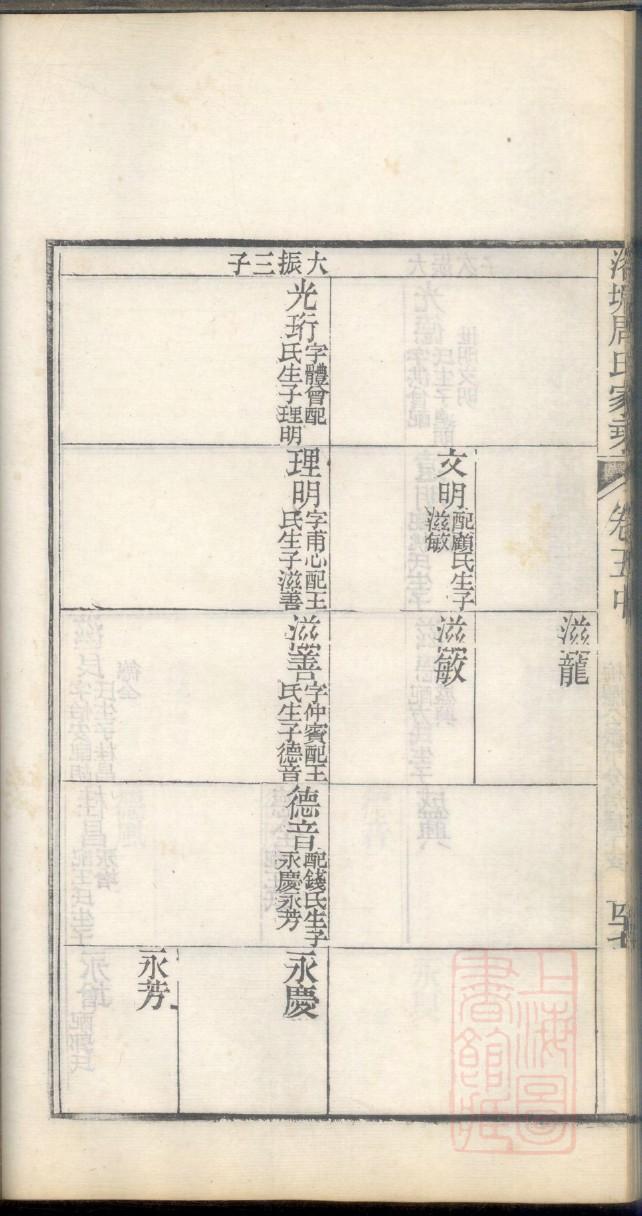 周氏家乘
卷五中
大振三子
滋龍
文明
配顧氏生子
滋敏
滋敏
光珩
字體曾配
氏生子理明
理明
字甫心配王
氏生子滋善
滋善
字仲賓配王
氏生子德音
德音
配錢氏生子
永慶永芳
永慶
永芳
上海圖
書館藏